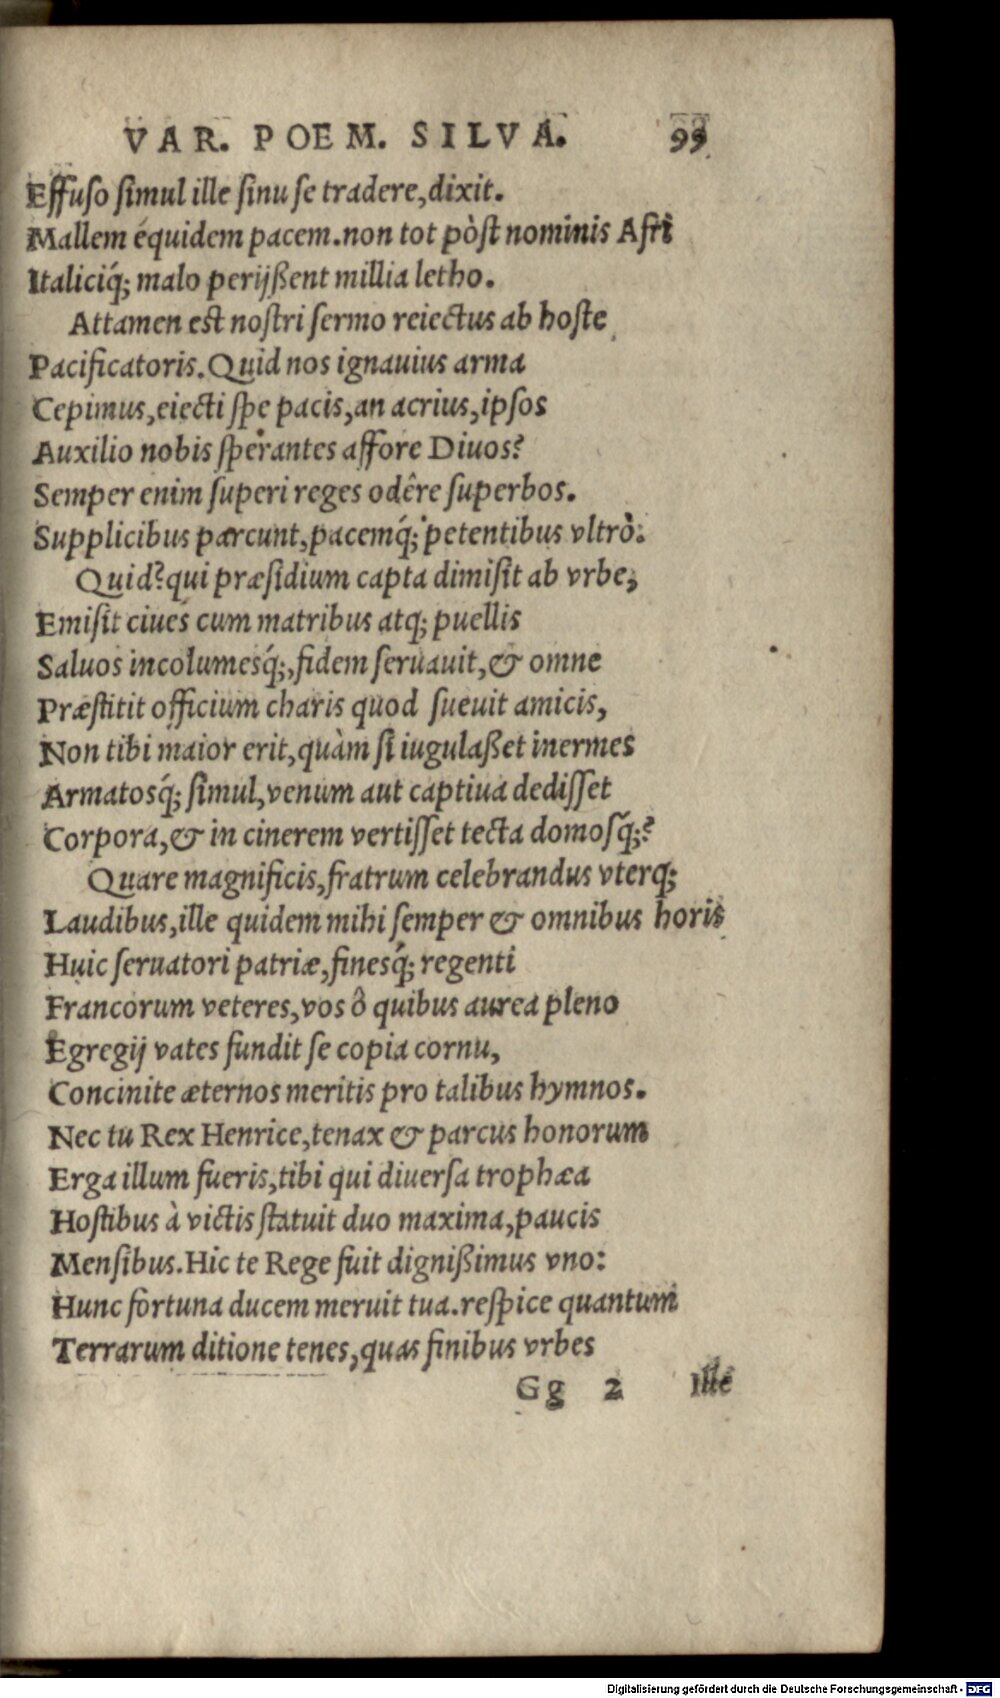 VAR. POEM. SILVA. 99
Effuso simul ille sinu se tradere, dixit.
Mallem équidem pacem. non tot pòst nominis Afri
Italiciq́; malo perijßent millia letho.
Attamen est nostri sermo reiectus ab hoste
Pacificatoris. Quid nos ignauius arma
Cepimus, eiecti spe pacis, an acrius, ipsos
Auxilio nobis sperantes affore Diuos?
Semper enim superi reges odêre superbos.
Supplicibus parcunt, pacemq́; petentibus vltrò.
Quid? qui præsidium capta dimisit ab vrbe,
Emisit ciues cum matribus atq; puellis
Saluos incolumesq́;, fidem seruauit, & omne
Præstitit officium charis quod sueuit amicis,
Non tibi maior erit, quàm si iugulaßet inermes
Armatosq́; simul, venum aut captiua dedisset
Corpora, & in cinerem vertisset tecta domosq́;?
Quare magnificis, fratrum celebrandus vterq;
Laudibus, ille quidem mihi semper & omnibus horis
Huic seruatori patriæ, finesq́; regenti
Francorum veteres, vos ô quibus aurea pleno
Egregij vates fundit se copia cornu,
Concinite æternos meritis pro talibus hymnos.
Nec tu Rex Henrice, tenax & parcus honorum
Erga illum fueris, tibi qui diuersa trophæa
Hostibus à victis statuit duo maxima, paucis
Mensibus. Hic te Rege fuit dignißimus vno:
Hunc fortuna ducem meruit tua. respice quantum
Terrarum ditione tenes, quas finibus vrbes
Gg 2 Ille
Digitalisierung gefördert durch die Deutsche Forschungsgemeinschaft - DFG